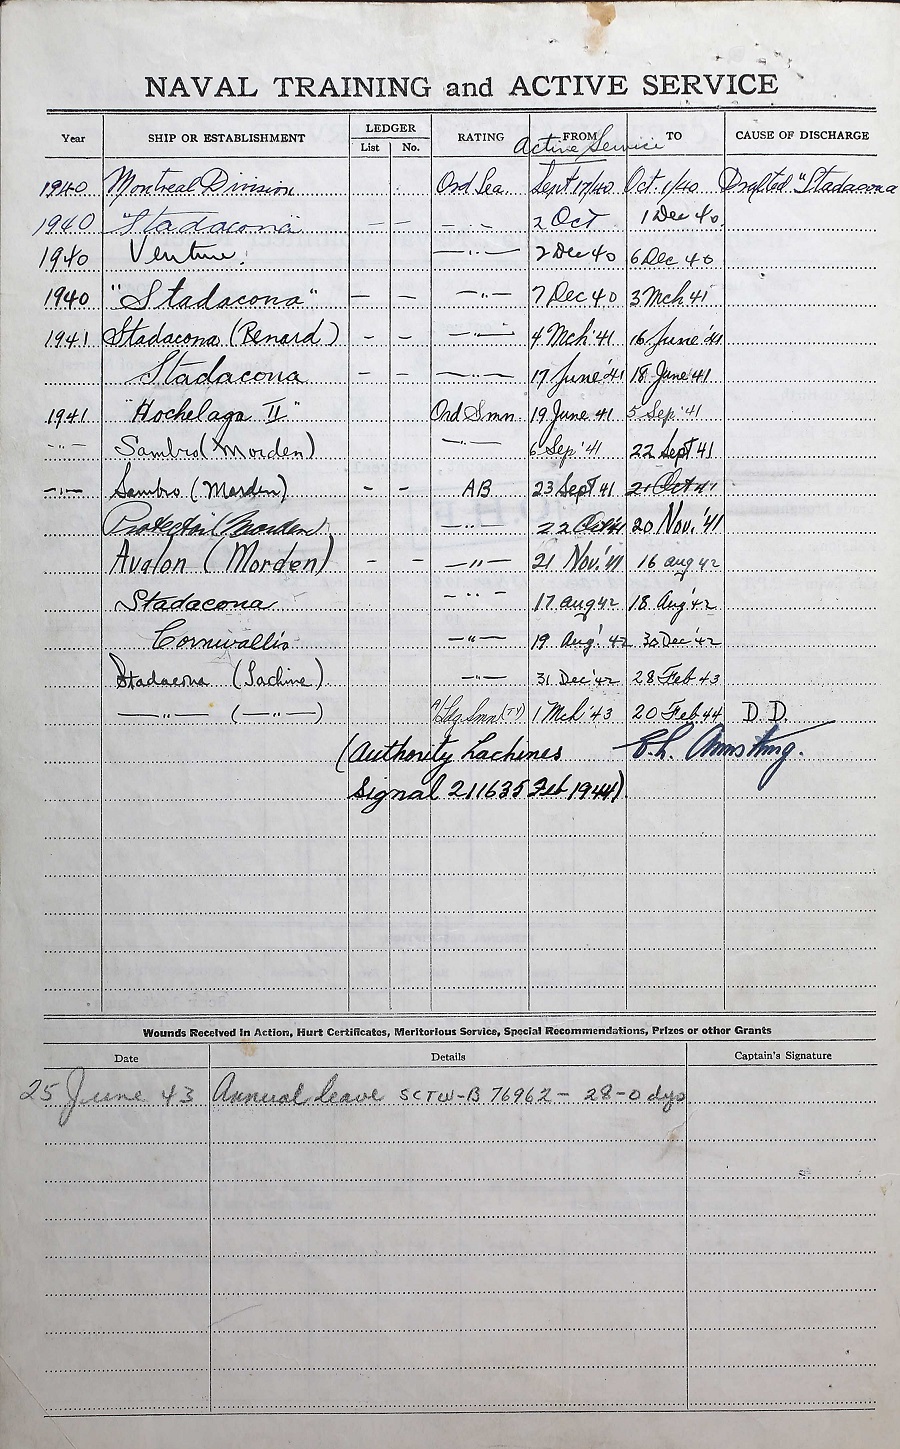 NAVAL TRAINING and ACTIVE SERVICE
Year SHIP OR ESTABLISHMENT LEDGER List No. RATING FROM TO CAUSE OF DISCHARGE
Active Service
1940 Montreal Division Ord Sea. Sept 17/40 Oct. 1/40 Drafted "Stadacona
1940 "Stadacona" — — —..— 2 Oct 1 Dec 40.
1940 Venture. —"— 2 Dec 40 6 Dec 40
1940 "Stadacona" — — —"— 7 Dec 40 3 Mch 41
1941 Stadacona (Renard) — — —"— 4 Mch '41 16 June '41
Stadacona — — —"— 17 June '41 18 June 41
1941 "Hochelaga II" Ord Smn 19 June 41 5 Sep '41
—"— Sambro (Morden) —"— 6 Sep '41 22 Sept 41
—"— Sambro (Morden) — — AB 23 Sept 41 21 Oct 41
Protector (Morden) —"— 22 Oct 41 20 Nov. '41
Avalon (Morden) — — —"— 21 Nov. '41 16 aug 42
Stadacona —"— 17 aug 42 18 Aug '42
Cornwallis —"— 19 Aug. '42 30 Dec '42
Stadacona (Lachine) —"— 31 Dec '42 28 Feb 43
—"— (—"—) A/Ldg. Smn (TY) 1 Mch '43 20 Feb 44 D.D.
(Authority Lachines E.L. Armstrong.
Signal 211635 Feb 1944)
Wounds Received in Action, Hurt Certificates, Meritorious Service, Special Recommendations, Prizes or other Grants
Date Details Captain's Signature
25 June 43 Annual Leave SCTW-B 76962 - 28-0 dys